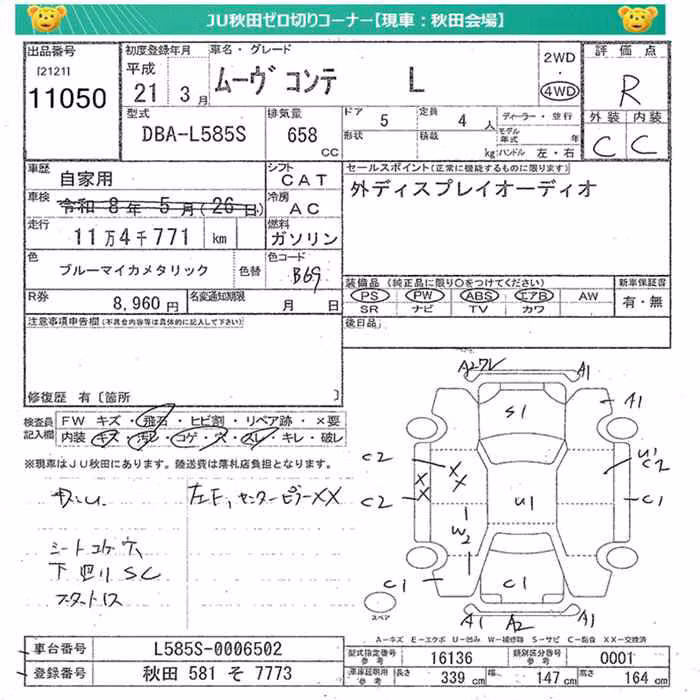 JU秋田ゼロ切りコーナー【現車：秋田会場】
出品番号
[2121]
11050
初度登録年月
平成
21 3月
車名・グレード
ムーヴ コンテ L
2WD
・
4WD
評価点
R
型式
DBA-L585S
排気量
658
CC
ドア
5
定員
4 人
形状
積載
kg
ディーラー・並行
モデル
年式
年
ハンドル 左・右
外装 内装
C C
車歴
自家用
シフト
CAT
セールスポイント(正常に機能するものに限ります)
外ディスプレイオーディオ
車検
令和 8年 5月(26日)
冷房
AC
走行
11万4千771 km
燃料
ガソリン
色
ブルーマイカメタリック
色替
色コード
B69
装備品 (純正品に限り○をつけてください)
PS PW ABS エアB AW
SR ナビ TV カワ
新車保証書
有・無
R券
8,960円
名変通知期限
月 日
後日品
注意事項申告欄(不具合内容等は具体的に記入して下さい)
修復歴 有〔箇所 〕
検査員
記入欄
FW キズ・飛石・ヒビ割・リペア跡・×要
内装 キズ・汚レ・コゲ・穴・スレ・キレ・破レ
※現車はJU秋田にあります。陸送費は落札店負担となります。
左F,センターピラーXX
シートコゲ穴
下回りSC
A2ワレ A1
S1 A1
C2 U1
C2
C2 C1
U1
W2
C1 C1
A1 A2 A1
スペア
A－キズ E－エクボ U－凹み W－補修跡 S－サビ C－腐食 XX－交換済
車台番号
L585S-0006502
登録番号
秋田 581 そ 7773
型式指定番号
参考
16136
類別区分番号
参考
0001
車庫証明用
参考
長さ
339 cm
幅
147 cm
高さ
164 cm